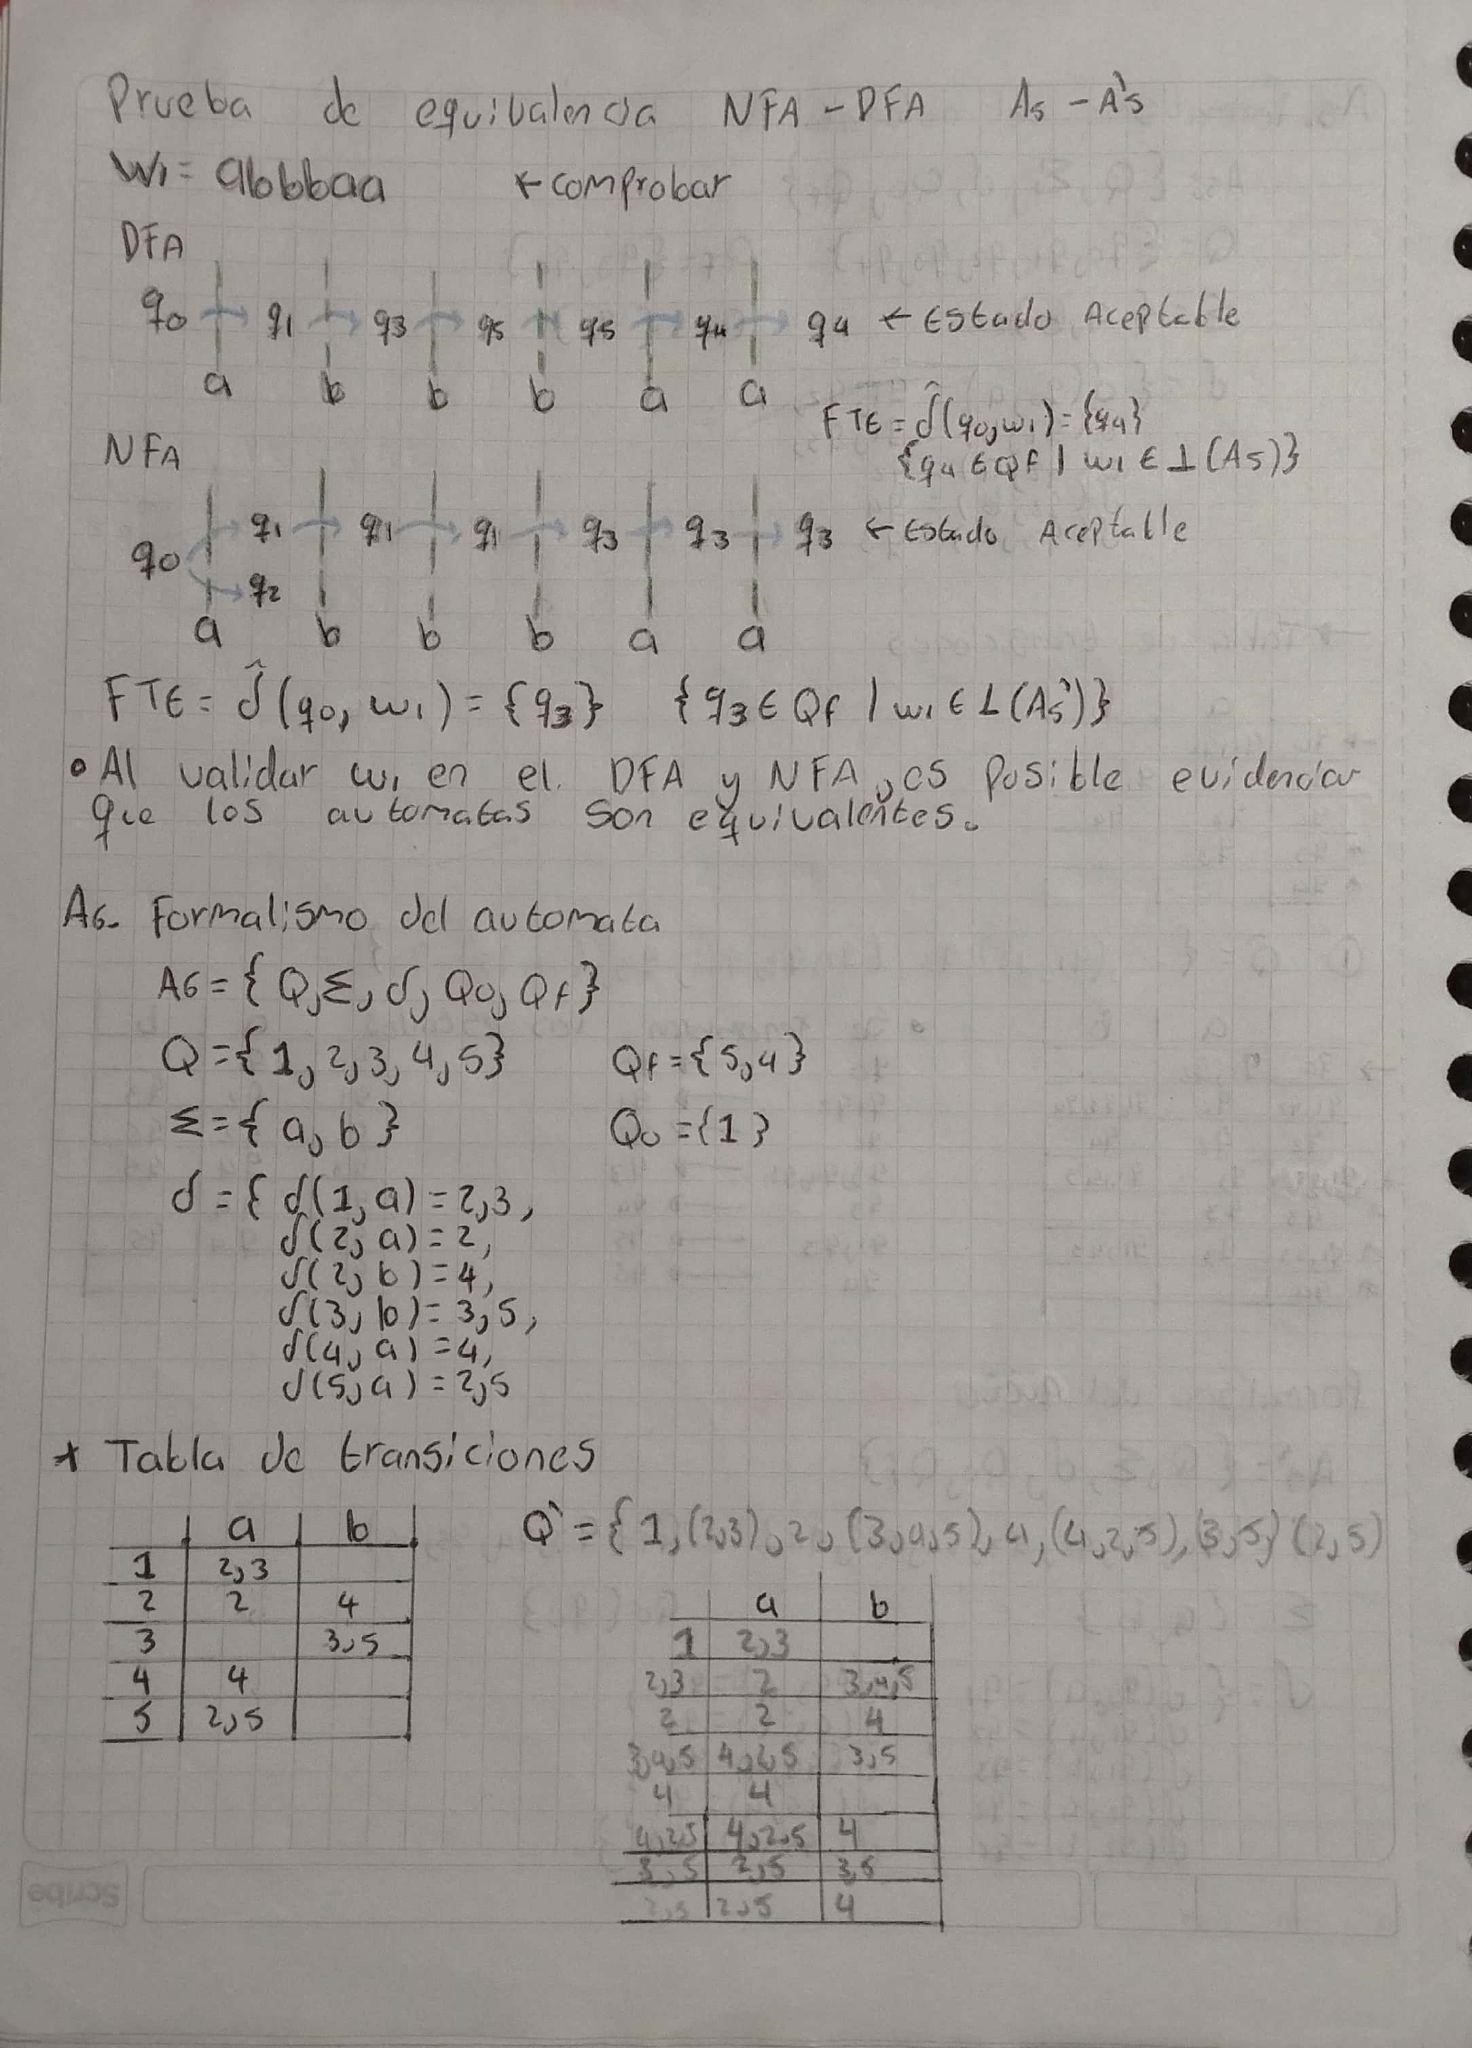 Prueba de equivalencia NFA - DFA A5 - A'5
W1 = abbbaa ← comprobar
DFA
q0 q1 q3 q5 q5 q4 q4 ← Estado Aceptable
a b b b a a
FTE = δ̂(q0, w1) = {q4}
{q4 ∈ QF | w1 ∈ L(A5)}
NFA
q1 q1 q1 q3 q3 q3 ← Estado Aceptable
q0
q2
a b b b a a
FTE = δ̂(q0, w1) = {q3} {q3 ∈ QF | w1 ∈ L(A5')}
• Al validar w1 en el DFA y NFA, es posible evidenciar
que los automatas son equivalentes.
A6. Formalismo del automata
A6 = {Q, Σ, δ, Q0, QF}
Q = {1, 2, 3, 4, 5} QF = {5, 4}
Σ = {a, b} Q0 = {1}
δ = { δ(1, a) = 2,3,
δ(2, a) = 2,
δ(2, b) = 4,
δ(3, b) = 3,5,
δ(4, a) = 4,
δ(5, a) = 2,5
* Tabla de transiciones
a b
1 2,3
2 2 4
3 3,5
4 4
5 2,5
Q' = {1, (2,3), 2, (3,4,5), 4, (4,2,5), (3,5) (2,5)
a b
1 2,3
2,3 2 3,4,5
2 2 4
3,4,5 4,2,5 3,5
4 4
4,2,5 4,2,5 4
3,5 2,5 3,5
2,5 2,5 4
Scribe